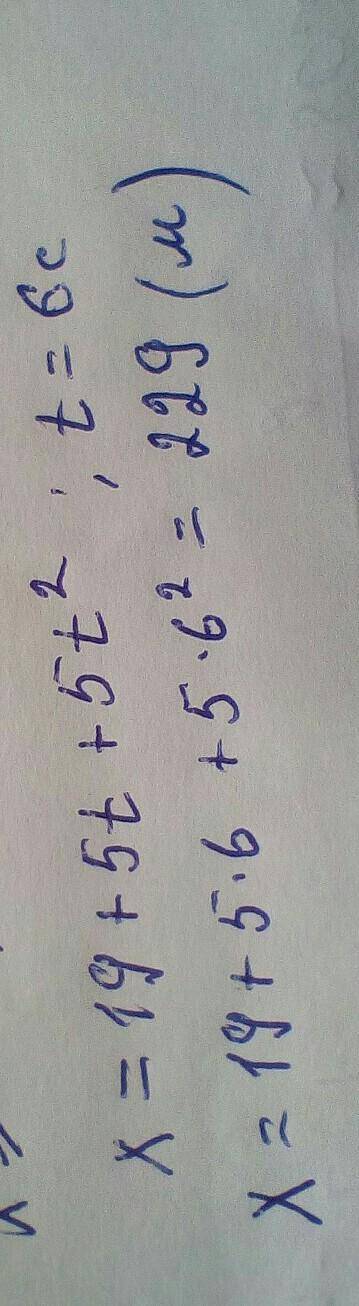 x = 19 + 5t + 5t² ; t = 6c
x = 19 + 5·6 + 5·6² = 229 (м)